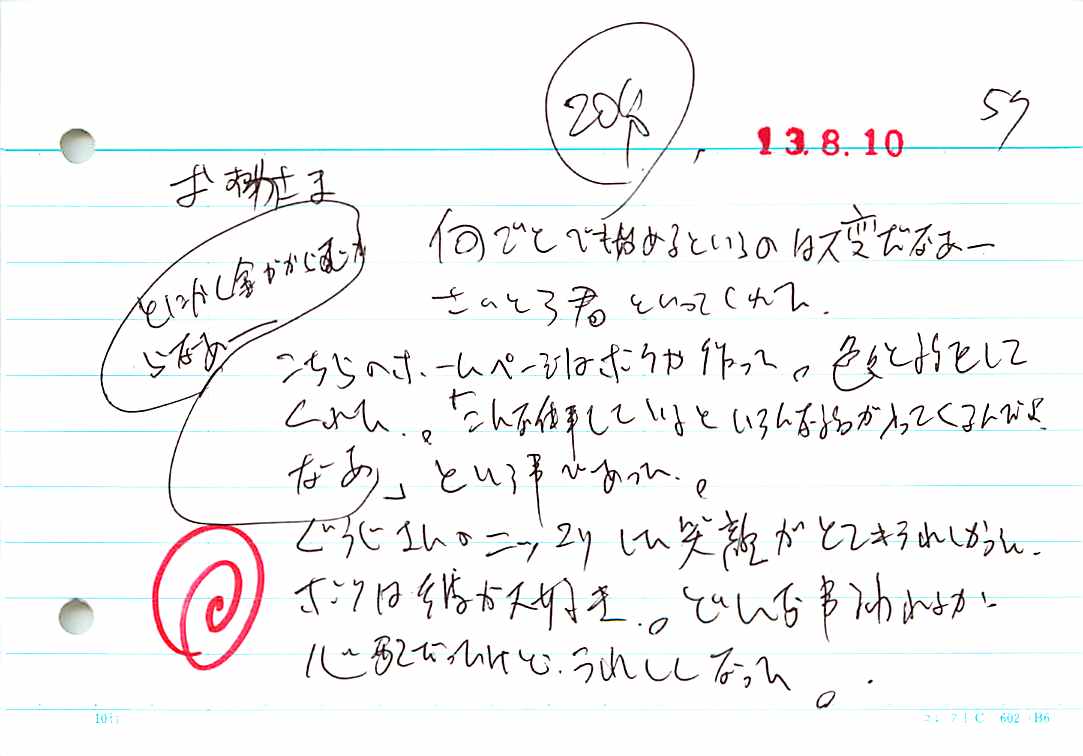 13.8.10
何ごとでも始めるというのは大変だなあー
さいとう君といってくれた.
とにかく金がかから
らなあー
こちらのホームページはボクが作った。色々と話をして
くれた。「こんな仕事していると いろんな話が入ってくるんだよ
なあ」という事であった。
くうじさんのニッコリした笑顔がとてもうれしかった.
ボクは彼が大好き。どんな事言われるか
心配だったけど、うれしくなった。
C 602 B6